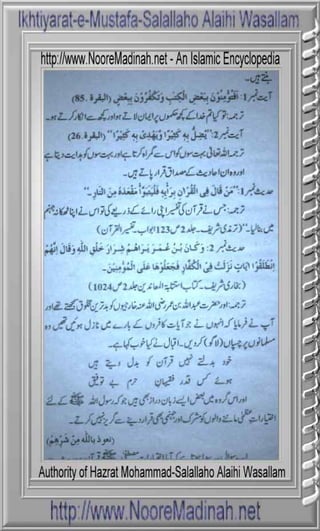 Ikhtiyarat-e-Mustafa-Salallaho Alaihi Wasallam
http://www.NooreMadinah.net - An Islamic Encyclopedia
بنتے ہیں۔
آیت نمبر 1: اَفَتُؤْمِنُوْنَ بِبَعْضِ الْكِتٰبِ وَتَكْفُرُوْنَ بِبَعْضٍ (البقرۃ .85)
ترجمہ: تو کیا تم خدا کے کچھ حکموں پر ایمان لاتے ہو اور کچھ سے انکار کرتے ہو۔
آیت نمبر 2: "یُضِلُّ بِهٖ كَثِیْرًا وَّیَهْدِیْ بِهٖ كَثِیْرًا" (البقرۃ .26)
ترجمہ: اللہ تعالیٰ بہت سوں کو اس سے گمراہ کرتا ہے اور بہت سوں کو ہدایت دیتا ہے
اور وہ ان احادیث کے مصداق قرار پاتے ہیں۔
حدیث نمبر 1: "مَنْ قَالَ فِی الْقُرْاٰنِ بِرَأْیِهٖ فَلْیَتَبَوَّأْ مَقْعَدَهٗ مِنَ النَّارِ۔"
ترجمہ: جس نے قرآن کی تفسیر اپنی رائے کے ذریعے کی تو اس نے اپنا ٹھکانہ جہنم
میں بنالیا۔" (ترمذی شریف۔ جلد 2 ص 123 ابواب۔ تفسیر القرآن)
حدیث نمبر 2: وَكَانَ بْنُ عُمَرَ یَرَاهُمْ شِرَارَ خَلْقِ اللّٰهِ وَقَالَ اِنَّهُمْ
اِنْطَلَقُوْا اٰیَاتٍ نَزَلَتْ فِی الْكُفَّارِ فَجَعَلُوْهَا عَلَی الْمُؤْمِنِیْنَ۔
(بخاری شریف۔ کتاب استتابۃ المعاندین جلد 2 ص 1024)
ترجمہ: اور حضرت عبداللہ بن عمر رضی اللہ عنہ خارجیوں کو بدترین مخلوق سمجھتے تھے اور
آپ نے فرمایا کہ انہوں نے جو آیات کافروں کے بارے میں نازل ہوئیں تھیں وہ
مسلمانوں پر چسپاں (لاگو) کر دیں۔ اقبال نے کیا خوب کہا ہے۔
خود بدلتے نہیں قرآن کو بدل دیتے ہیں
ہوئے کس قدر فقیہانِ حرم بے توفیق
اور اس گروہ میں بعض ایسے زبان دراز بھی ہیں جو کہ رسول اللہ ﷺ کے لئے
اختیارات عظمیٰ ماننے والوں کو مشرک اور جہنمی بھی قرار دینے سے گریز نہیں کرتے۔
(نعوذ باللّٰہ مِنْ شَرِّهِمْ)
Authority of Hazrat Mohammad-Salallaho Alaihi Wasallam
http://www.NooreMadinah.net